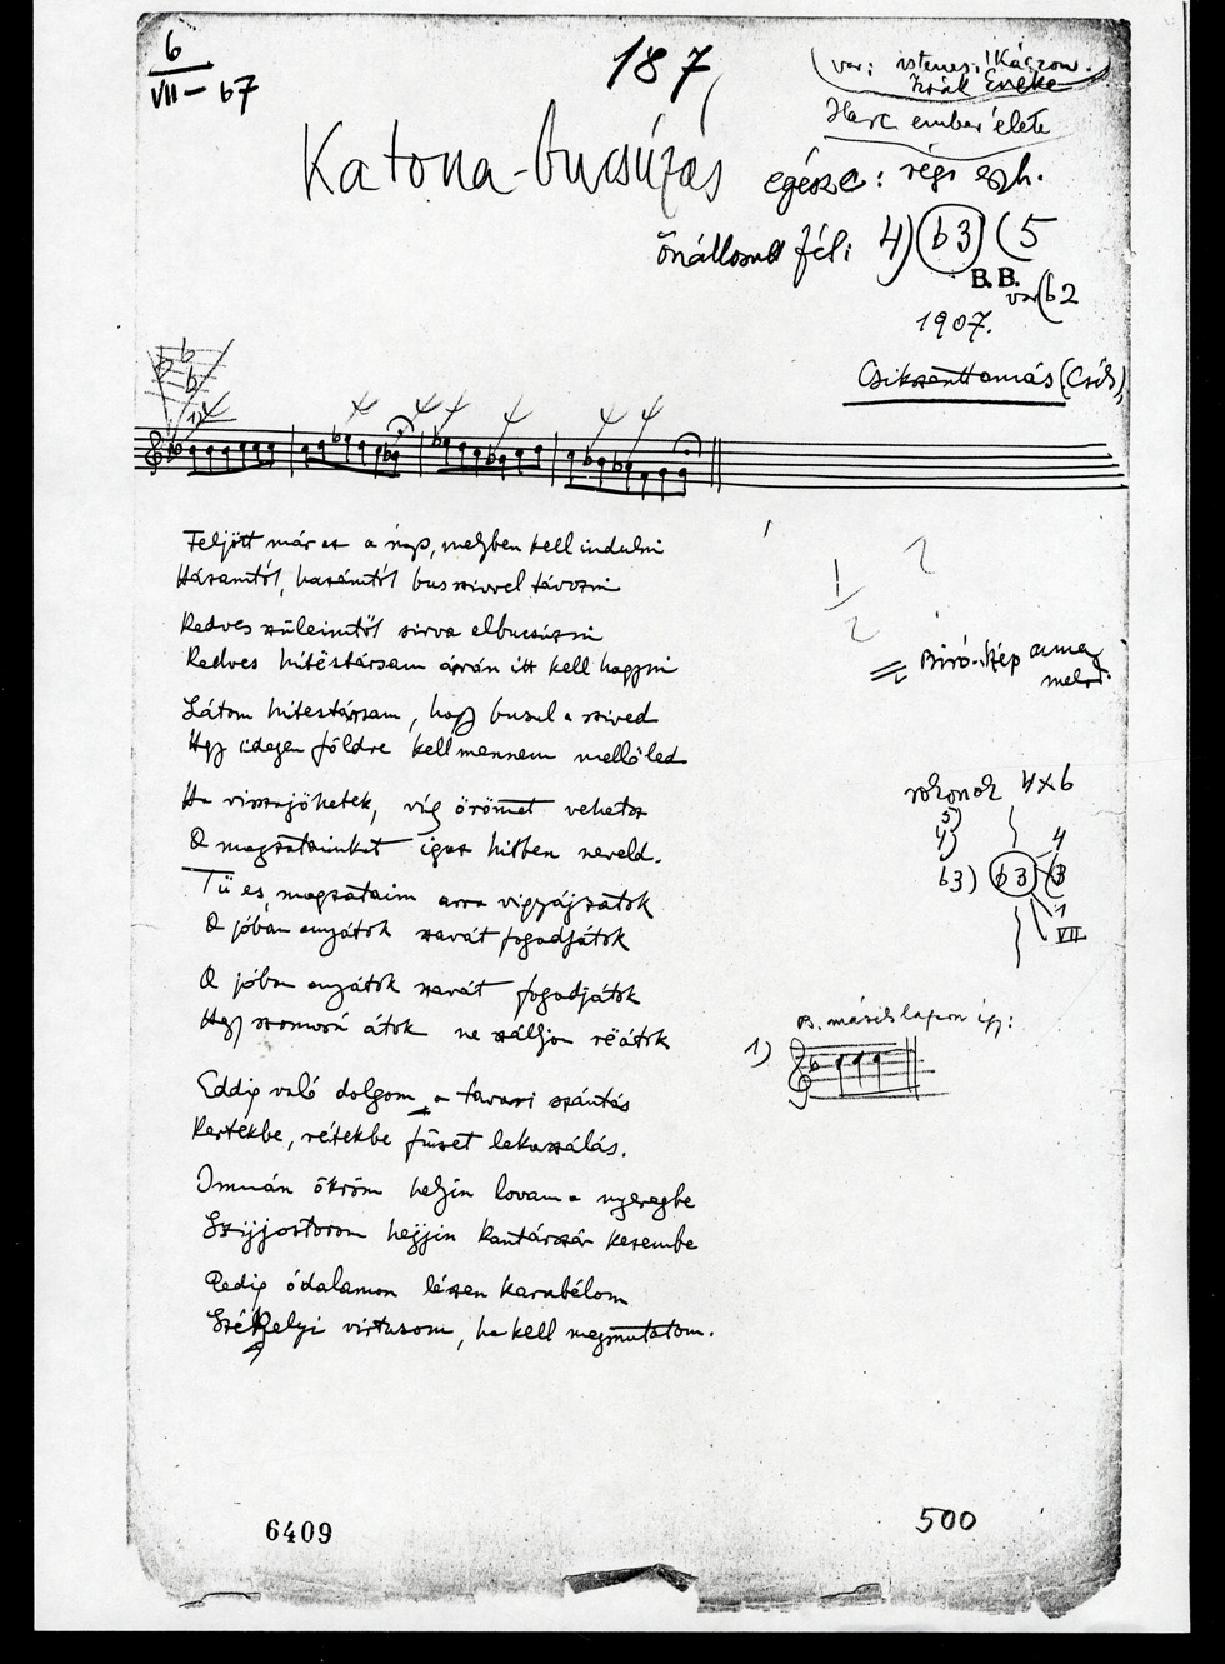 6
VII - b7
187
var: istenes, Kászon.
Ének
Harc ember élete
Katona-bucsúzás
egésze: régi egyh.
önállósult fél: 4) (b3) (5
B. B.
var (b2
1907.
Csikszenttamás (Csík),
1)
Feljött már ez a nap, melyben kell indulni
Házamtól, hazámtól bus szivvel távozni
Kedves szüleimtől sirva elbucsúzni
Kedves hitëstársam árván itt kell hagyni
Látom hitestársam, hogy busul a szived
Hgy idegen földre kell mennem mellőled
Ha visszajöhetek, víg örömet vehetsz
A magzatainkat igaz hitben neveld.
Tü es magzataim arra vigyájzatok
A jóban anyátok szavát fogadjátok
A jóba anyátok szavát fogadjátok
Hgy szomorú átok ne szálljon rëátok
Eddig való dolgom a tavaszi szántás
Kertekbe, rétekbe füvet lekaszálás.
Immán ökröm heljin lovam a nyeregbe
Szijjostorom hejjin kantárszár kezembe
Pedig ódalamon lészen karabélom
Székelyi virtusom, ha kell megmutatom.
1
2
= Biró-szép anna
melod.
rokonok 4x6
5)
4) 4
b3) (b3) (3
1
VII
B. másik lapon így:
1)
6409
500